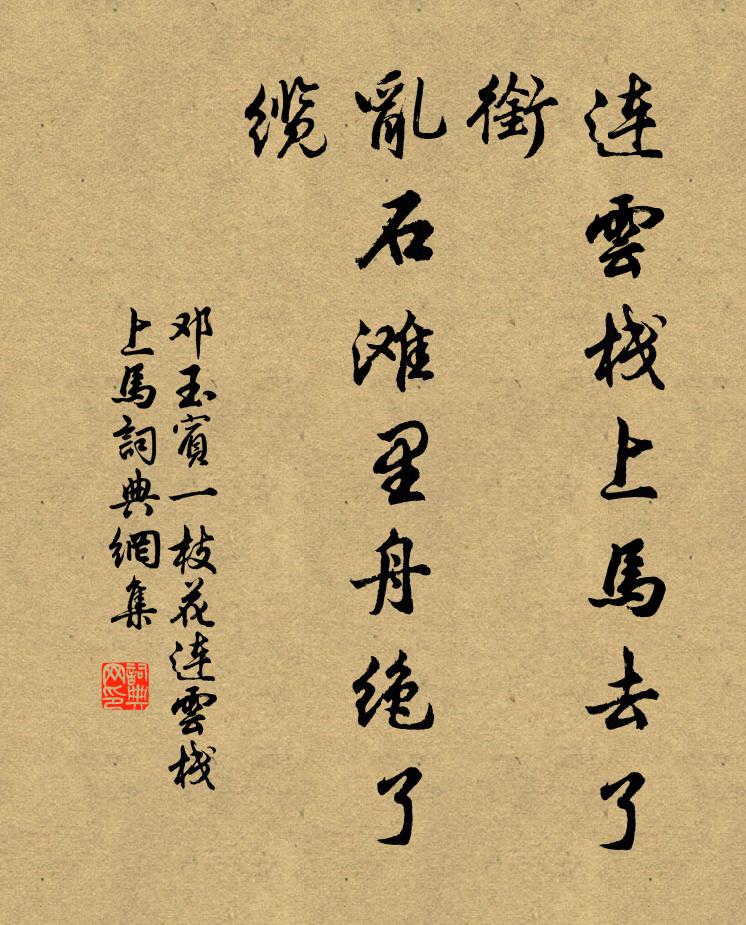 連雲栈上馬去了
銜
亂石滩里舟绝了
缆
邓玉賓一枝花連雲栈
上馬詞典網集
詞典
网印